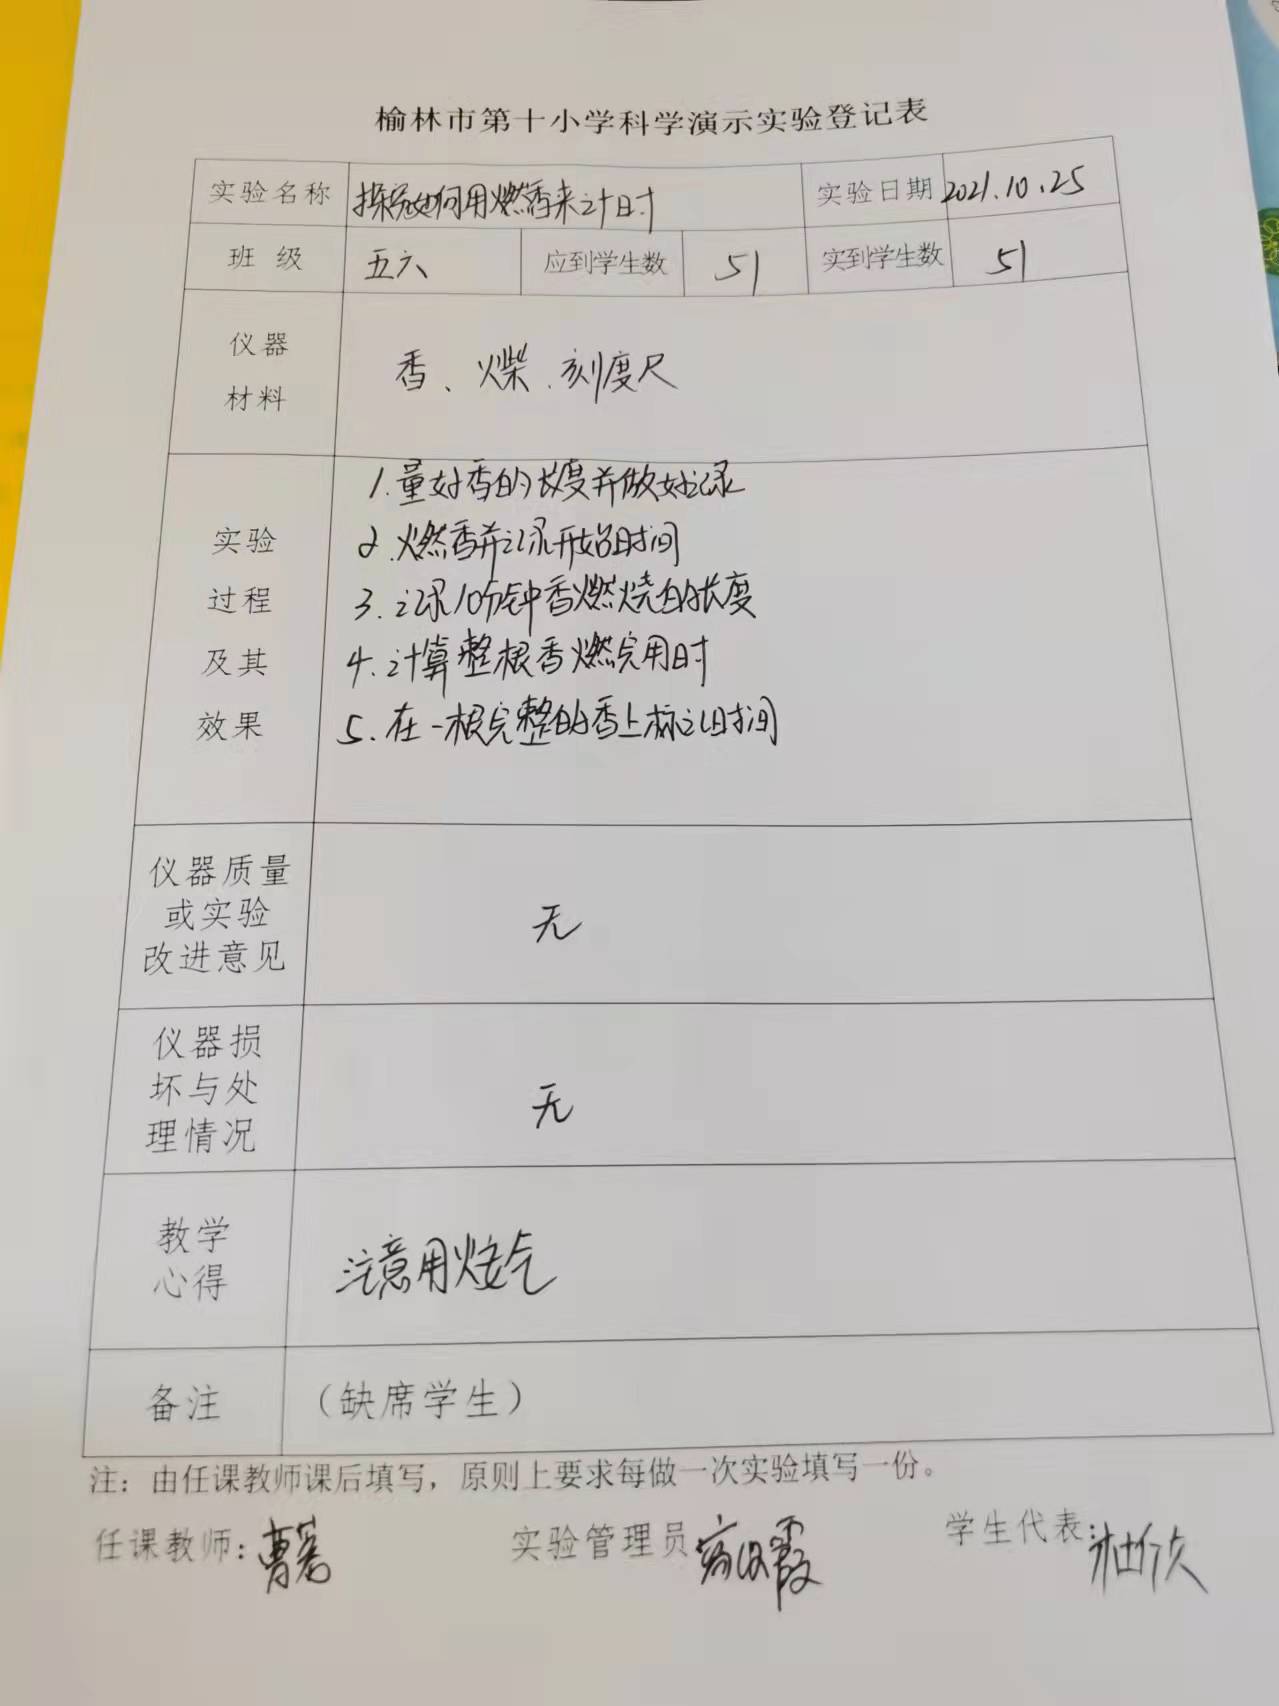 榆林市第十小学科学演示实验登记表
实验名称 探究如何用燃香来计时 实验日期 2021.10.25
班 级 五六 应到学生数 51 实到学生数 51
仪器
材料
香、火柴、刻度尺
实验
过程
及其
效果
1.量好香的长度并做好记录
2.燃香并记录开始时间
3.记录10分钟香燃烧的长度
4.计算整根香燃完用时
5.在一根完整的香上标记时间
仪器质量
或实验
改进意见
无
仪器损
坏与处
理情况
无
教学
心得
注意用火安全
备注
（缺席学生）
注：由任课教师课后填写，原则上要求每做一次实验填写一份。
任课教师： 曹 实验管理员 霞 学生代表：